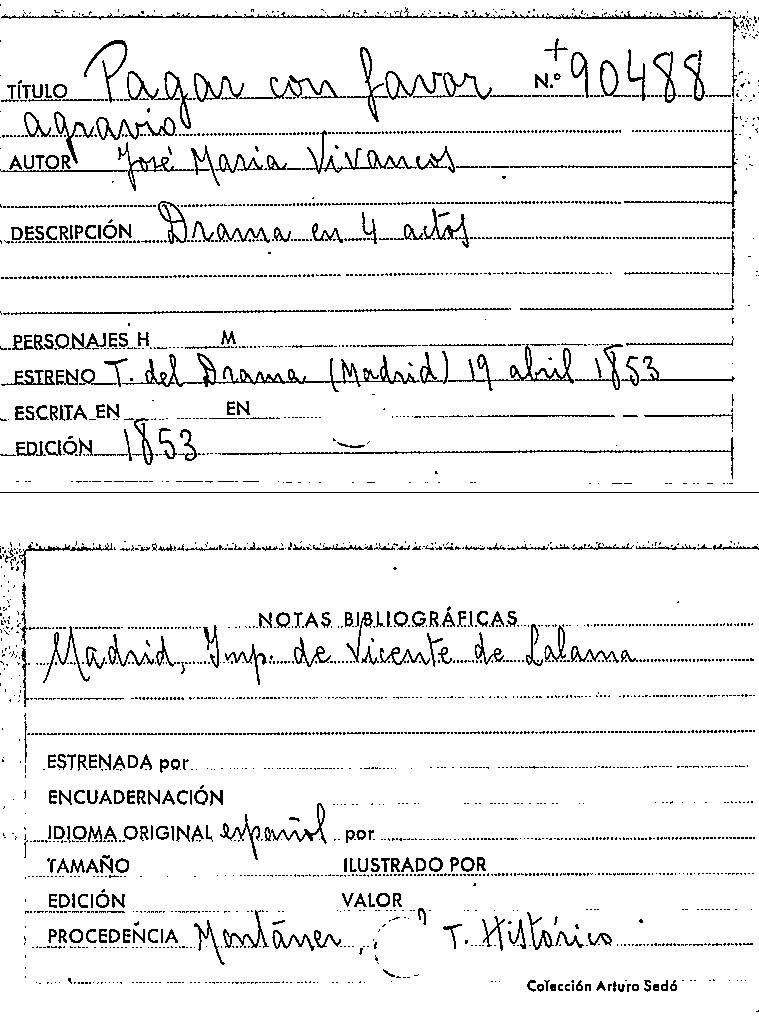 TÍTULO Pagar con favor N.º +90488
agravio
AUTOR José Maria Vivancos
DESCRIPCIÓN Drama en 4 actos
PERSONAJES H M
ESTRENO T. del Drama (Madrid) 19 abril 1853
ESCRITA EN EN
EDICIÓN 1853
NOTAS BIBLIOGRÁFICAS
Madrid, Imp. de Vicente de Lalama
ESTRENADA por
ENCUADERNACIÓN
IDIOMA ORIGINAL español por
TAMAÑO ILUSTRADO POR
EDICIÓN VALOR
PROCEDENCIA Montáner, T. Histórico
Colección Arturo Sedó